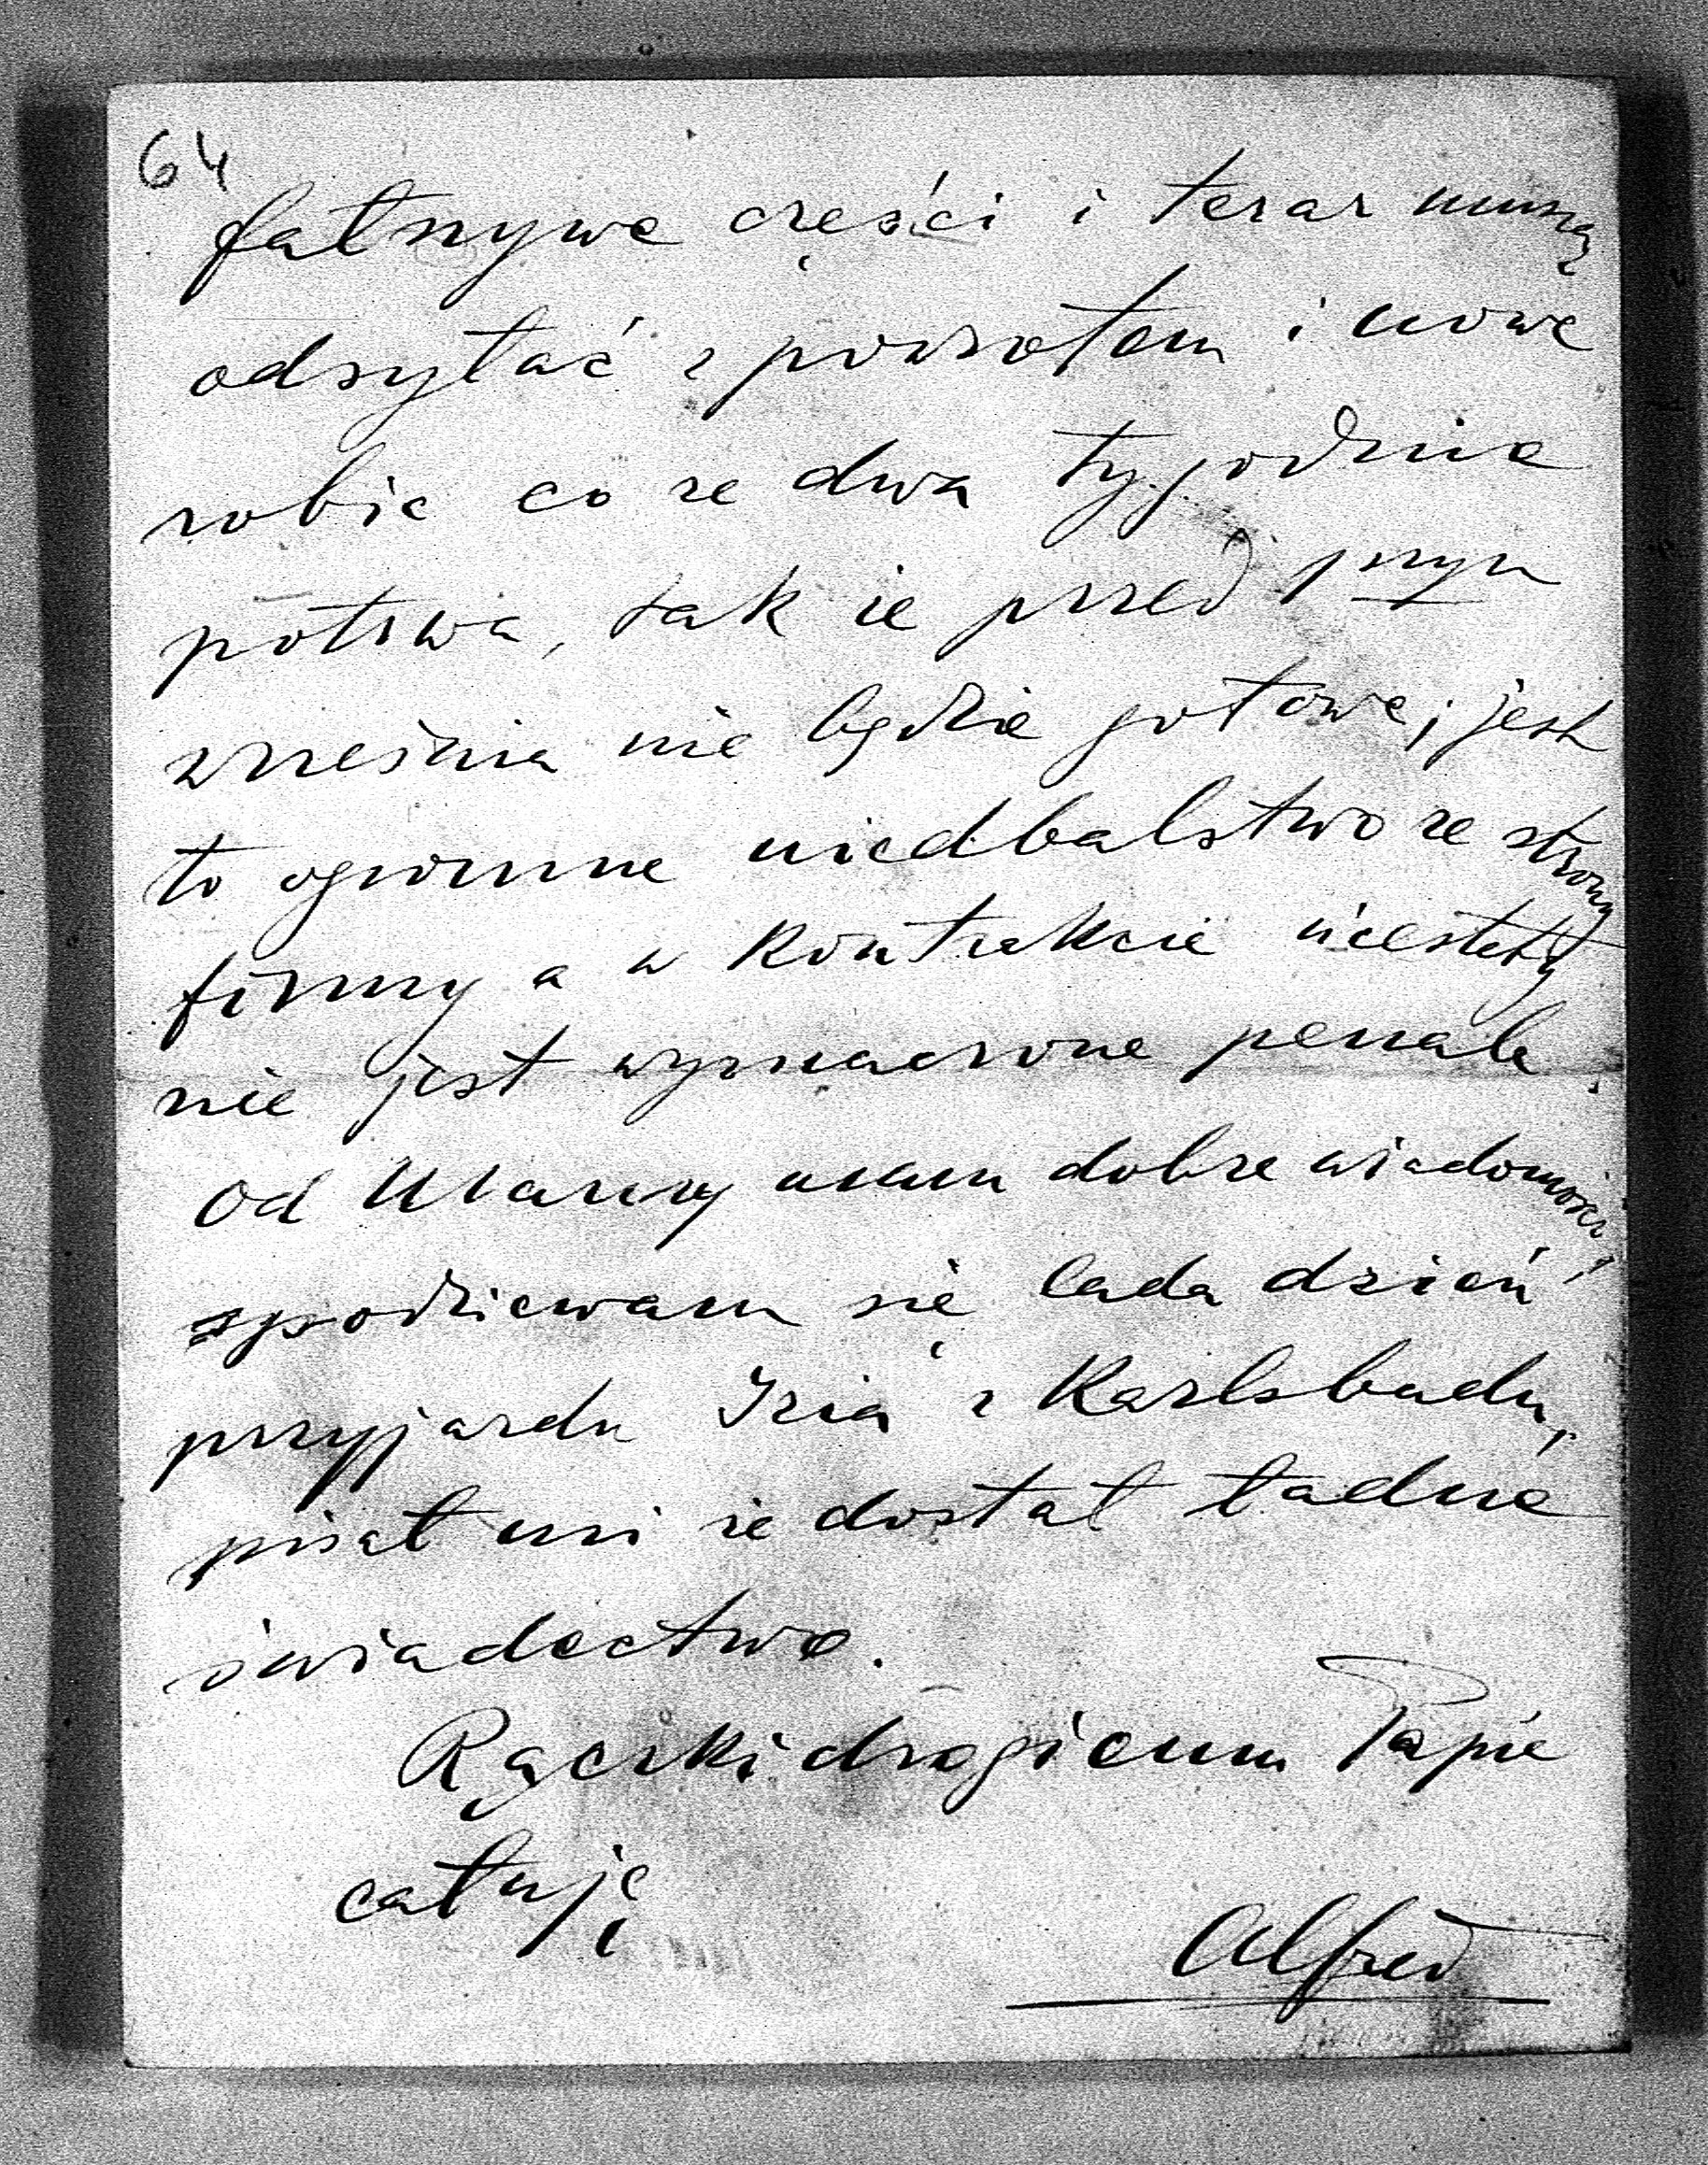 64
fałszywe części i teraz muszą
odsyłać z powrotem i nowe
robić co ze dwa tygodnie
potrwa, tak że przed
września nie będzie gotowe; jest
to ogromne niedbalstwo ze strony
firmy a w kontrakcie niestety
nie jest wyznaczone penale.
Od Mamy mam dobre wiadomości,
spodziewam się lada dzień
przyjazdu Izia z Karlsbadu,
pisał mi że dostał ładne
świadectwo.
Rączki drogiemu Papie
całuję
Alfred